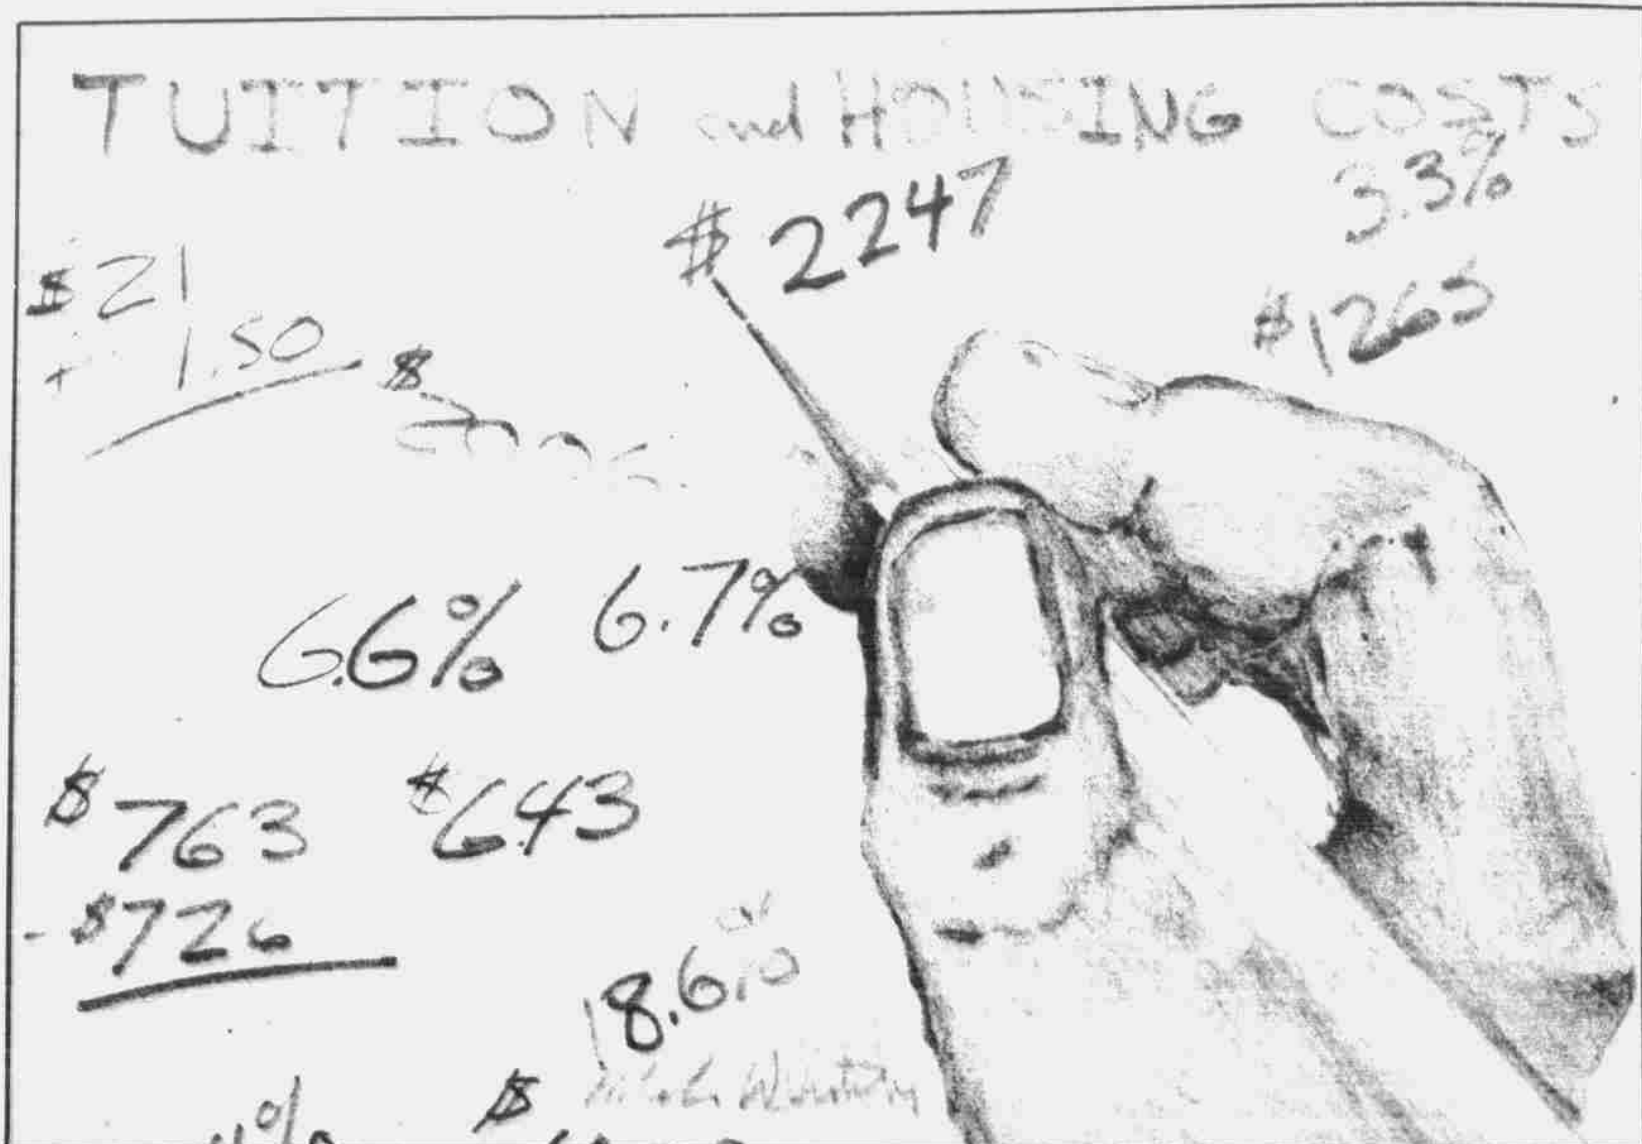 TUITION and HOUSING COSTS
3.3%
$2247
$21
+ 1.50
$1265
$
6.6% 6.7%
$763 $643
- $726
18.6%
$